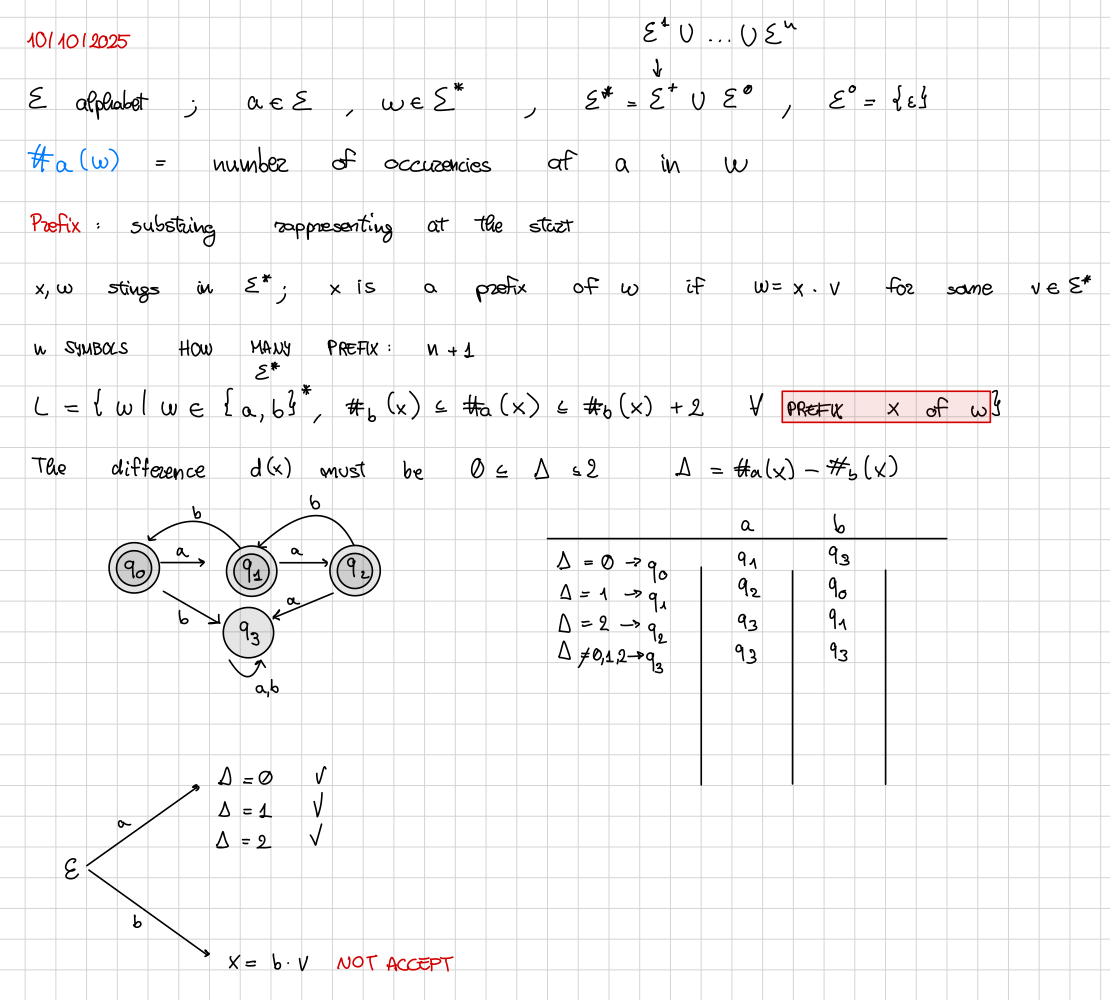 10/10/2025
Σ¹ ∪ ... ∪ Σⁿ
↓
Σ alphabet ; a ∈ Σ , w ∈ Σ* , Σ* = Σ⁺ ∪ Σ⁰ , Σ⁰ = {ε}
#a(w) = number of occurencies of a in w
Prefix : substring rappresenting at the start
x, w stings in Σ* ; x is a prefix of w if w = x · v for some v ∈ Σ*
n SYMBOLS HOW MANY PREFIX : n + 1
Σ*
L = { w | w ∈ {a, b}*, #b(x) ≤ #a(x) ≤ #b(x) + 2 ∀ PREFIX x of w}
The difference d(x) must be 0 ≤ Δ ≤ 2 Δ = #a(x) − #b(x)
b b
q₀ a q₁ a q₂
b q₃ a
a,b
a b
Δ = 0 → q₀ q₁ q₃
Δ = 1 → q₁ q₂ q₀
Δ = 2 → q₂ q₃ q₁
Δ ≠ 0,1,2 → q₃ q₃ q₃
Δ = 0 √
a Δ = 1 √
Δ = 2 √
ε
b
x = b · v NOT ACCEPT